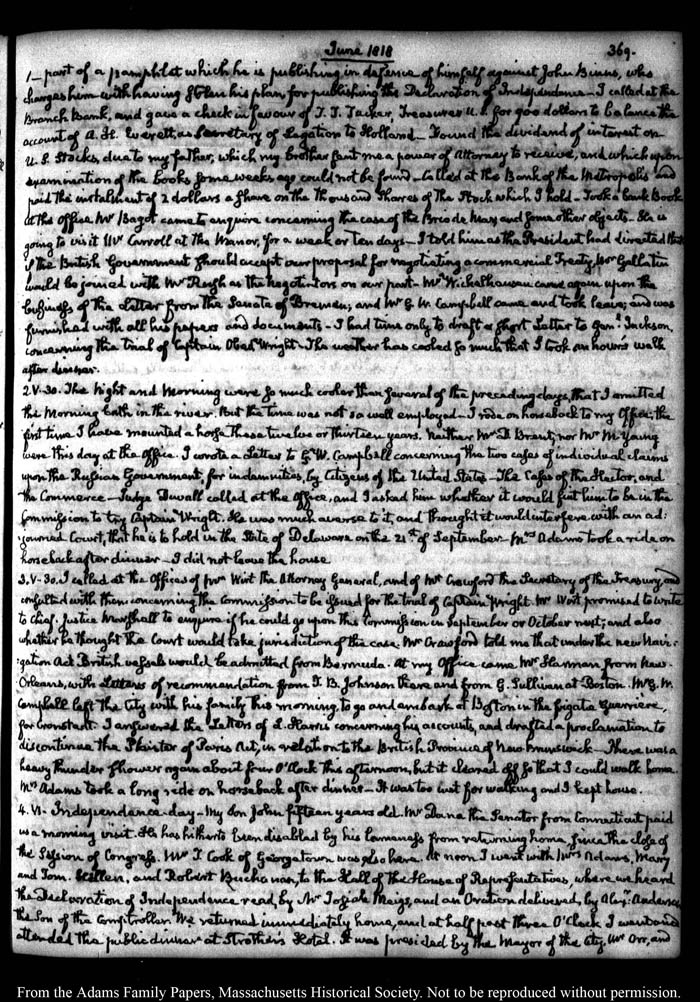 June 1818
369.
1— part of a pamphlet which he is publishing in defence of himself against John Binns, who
charges him with having stolen his plan for publishing the Declaration of Independence. I called at the
Branch Bank, and gave a check in favour of T. T. Tucker, Treasurer U.S. for 900 dollars to balance the
account of A. H. Everett, as Secretary of Legation to Holland— Found the dividend of interest on
U. S. Stocks, due to my father, which my brother sent me a power of Attorney to receive, and which upon
examination of the books some weeks ago could not be found— Called at the Bank of the Metropolis and
paid the instalment of 2 dollars a share on the thousand shares of the Stock which I hold— Took a bank Book
At the Office, Mr Bagot came to enquire concerning the case of the Brig de May and some other objects— He is
going to visit Mr Carroll at the Manor, for a week or ten days— I told him as the President had directed that
if the British Government should accept our proposal for negotiating a commercial Treaty, Mr Gallatin
would be joined with Mr Rush as the negotiators on our part— Mr Wichelhausen came again upon the
business of the Letter from the Senate of Bremen; and Mr G. W. Campbell came and took leave; and was
furnished with all his papers and documents— I had time only to draft a short Letter to Genl. Jackson,
concerning the trial of Captain Obed Wright— The weather has cooled so much that I took an hour's walk
after dinner.
2. V:30. The Night and Morning were so much cooler than several of the preceding days, that I omitted
the Morning bath in the river. But the time was not so well employed— I rode on horseback to my Office; the
first time I have mounted a horse these twelve or thirteen years. Neither Mr D. Brent, nor Mr M. Young
were this day at the office. I wrote a Letter to G. W. Campbell concerning the two cases of individual claims
upon the Russian Government, for indemnities, by Citizens of the United States— The Cases of the Hector, and
the Commerce— Judge Duvall called at the Office, and I asked him whether it would suit him to be in the
Commission to try Captain Wright. He was much averse to it, and thought it would interfere with an ad-
journed Court, that he is to hold in the State of Delaware on the 21st of September— Mrs Adams took a ride on
horseback after dinner— I did not leave the house
3. V:30. I called at the Offices of Mr Wirt the Attorney General, and of Mr Crawford the Secretary of the Treasury, and
consulted with them concerning the Commission to be issued for the trial of Captain Wright. Mr Wirt promised to write
to Chief Justice Marshall to enquire if he could go upon this Commission in September or October next; and also
whether he thought the Court would take jurisdiction of the case. Mr Crawford told me that under the new Navi-
gation Act British vessels would be admitted from Bermuda. At my Office came Mr Harman from New-
Orleans, with Letters of recommendation from I. B. Johnson there and from G. Sullivan at Boston. Mr G. W.
Campbell left the City with his family this morning, to go and embark at Boston in the frigate Guerriere,
for Cronstadt. I answered the Letters of L. Harris concerning his accounts, and drafted a proclamation to
discontinue the Plaister of Paris Act, in relation to the British Province of New Brunswick— There was a
heavy thunder shower again about four O'Clock this afternoon, but it cleared off so that I could walk home.
Mrs Adams took a long ride on horseback after dinner— It was too wet for walking and I kept house.
4. VI. Independence-day— My Son John fifteen years old. Mr Dana the Senator from Connecticut paid
us a morning visit. He has hitherto been disabled by his lameness from returning home, since the close of
the Session of Congress. Mr T. Cook of Georgetown was also here. At noon I went with Mrs Adams, Mary
and Tom. Hellen, and Robert Buchanan, to the Hall of the House of Representatives, where we heard
the Declaration of Independence read, by Mr Josiah Meigs, and an Oration delivered, by Alexr. Anderson
the Son of the Comptroller. We returned immediately home, and at half past three O'Clock I went and
attended the public dinner at Strother's Hotel. It was presided by the Mayor of the City, Mr Orr, and
From the Adams Family Papers, Massachusetts Historical Society. Not to be reproduced without permission.